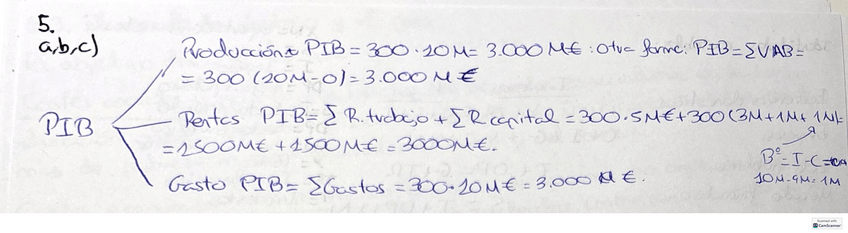 5.
a,b,c)
Producción: PIB = 300 · 10M = 3.000 M€ : otra forma: PIB = ΣVAB =
= 300 (10M - 0) = 3.000 M €
PIB
Rentas PIB = Σ R. trabajo + Σ R capital = 300 · 5M€ + 300 (3M + 1M + 1M) =
= 1500M€ + 1500M€ = 3000M€.
Bº = I - C =
10M - 9M = 1M
Gasto PIB = ΣGastos = 300 · 10M€ = 3.000 M €.
CamScanner